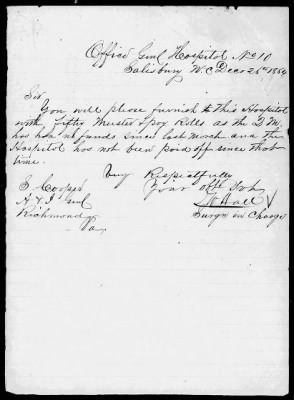 Office Genl Hospital No 10
Salisbury N.C. Decr 26th 1864
Sir
You will please furnish to this Hospital
with fifty Muster & pay Rolls as the Q M
has had no funds since last March and the
Hospital has not been paid off since that
time.
Very Respectfully
Your obt Svt
Hall
Surgn in Charge
S. Cooper
A & I Genl
Richmond
Va